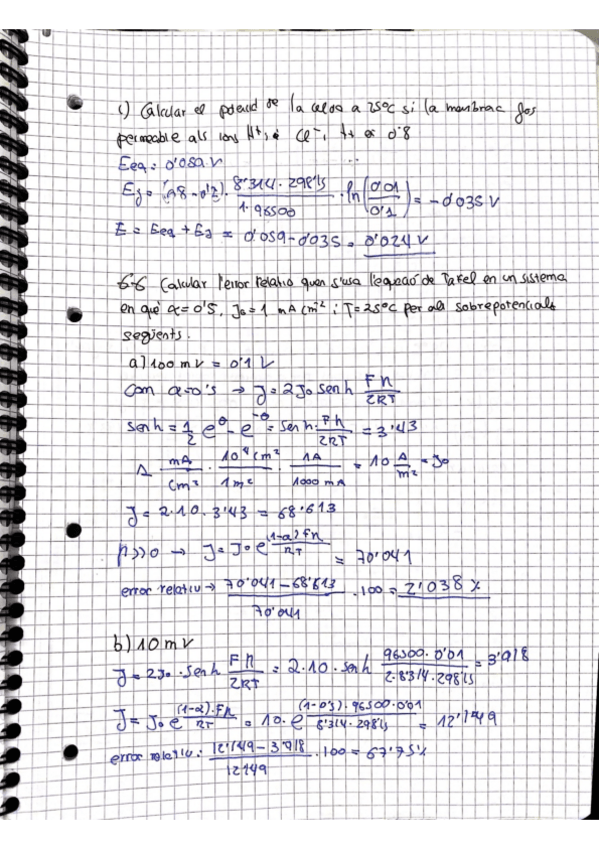 c) Calcular el potencial de la celda a 25ºC si la membrana fos
permeable als ions H⁺, i Cl⁻, t+ = 0'8
Eeq = 0'059 V
Ej = (0'8 - 0'2) · 8'314 · 298'15 / 1 · 96500 · ln(0'01 / 0'1) = -0'035 V
E = Eeq + Ej = 0'059 - 0'035 = 0'024 V
6-6 Calcular l'error relatiu quan s'usa l'equació de Tafel en un sistema
en què α = 0'5, J₀ = 1 mA cm⁻² i T = 25ºC per als sobrepotencials
següents.
a) 100 mV = 0'1 V
Com α = 0'5 → J = 2J₀ senh Fη / 2RT
senh = 1/2 e^θ - e^-θ = senh · Fη / 2RT = 3'43
1 mA / cm² · 10⁴ cm² / 1 m² · 1A / 1000 mA = 10 A / m² = J₀
J = 2 · 10 · 3'43 = 68'613
η >> 0 → J = J₀ e^(1-α) Fη / RT = 70'041
error relatiu → 70'041 - 68'613 / 70'041 · 100 = 2'038 %
b) 10 mV
J = 2J₀ · senh Fη / 2RT = 2 · 10 · senh 96500 · 0'01 / 2 · 8'314 · 298'15 = 3'918
J = J₀ e^(1-α) · Fη / RT = 10 · e^(1-0'5) · 96500 · 0'01 / 8'314 · 298'15 = 12'149
error relatiu: 12'149 - 3'918 / 12'149 · 100 = 67'75 %